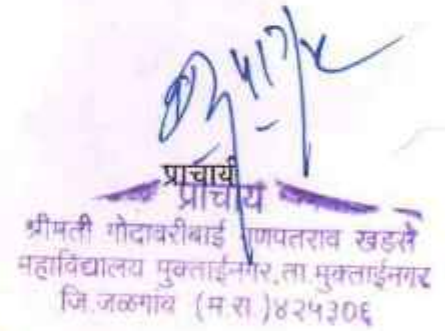 प्राचार्य
प्राचार्य
श्रीमती गोदावरीबाई गणपतराव खडसे
महाविद्यालय मुक्ताईनगर,ता.मुक्ताईनगर
जि.जळगाव (म.रा.)४२५३०६